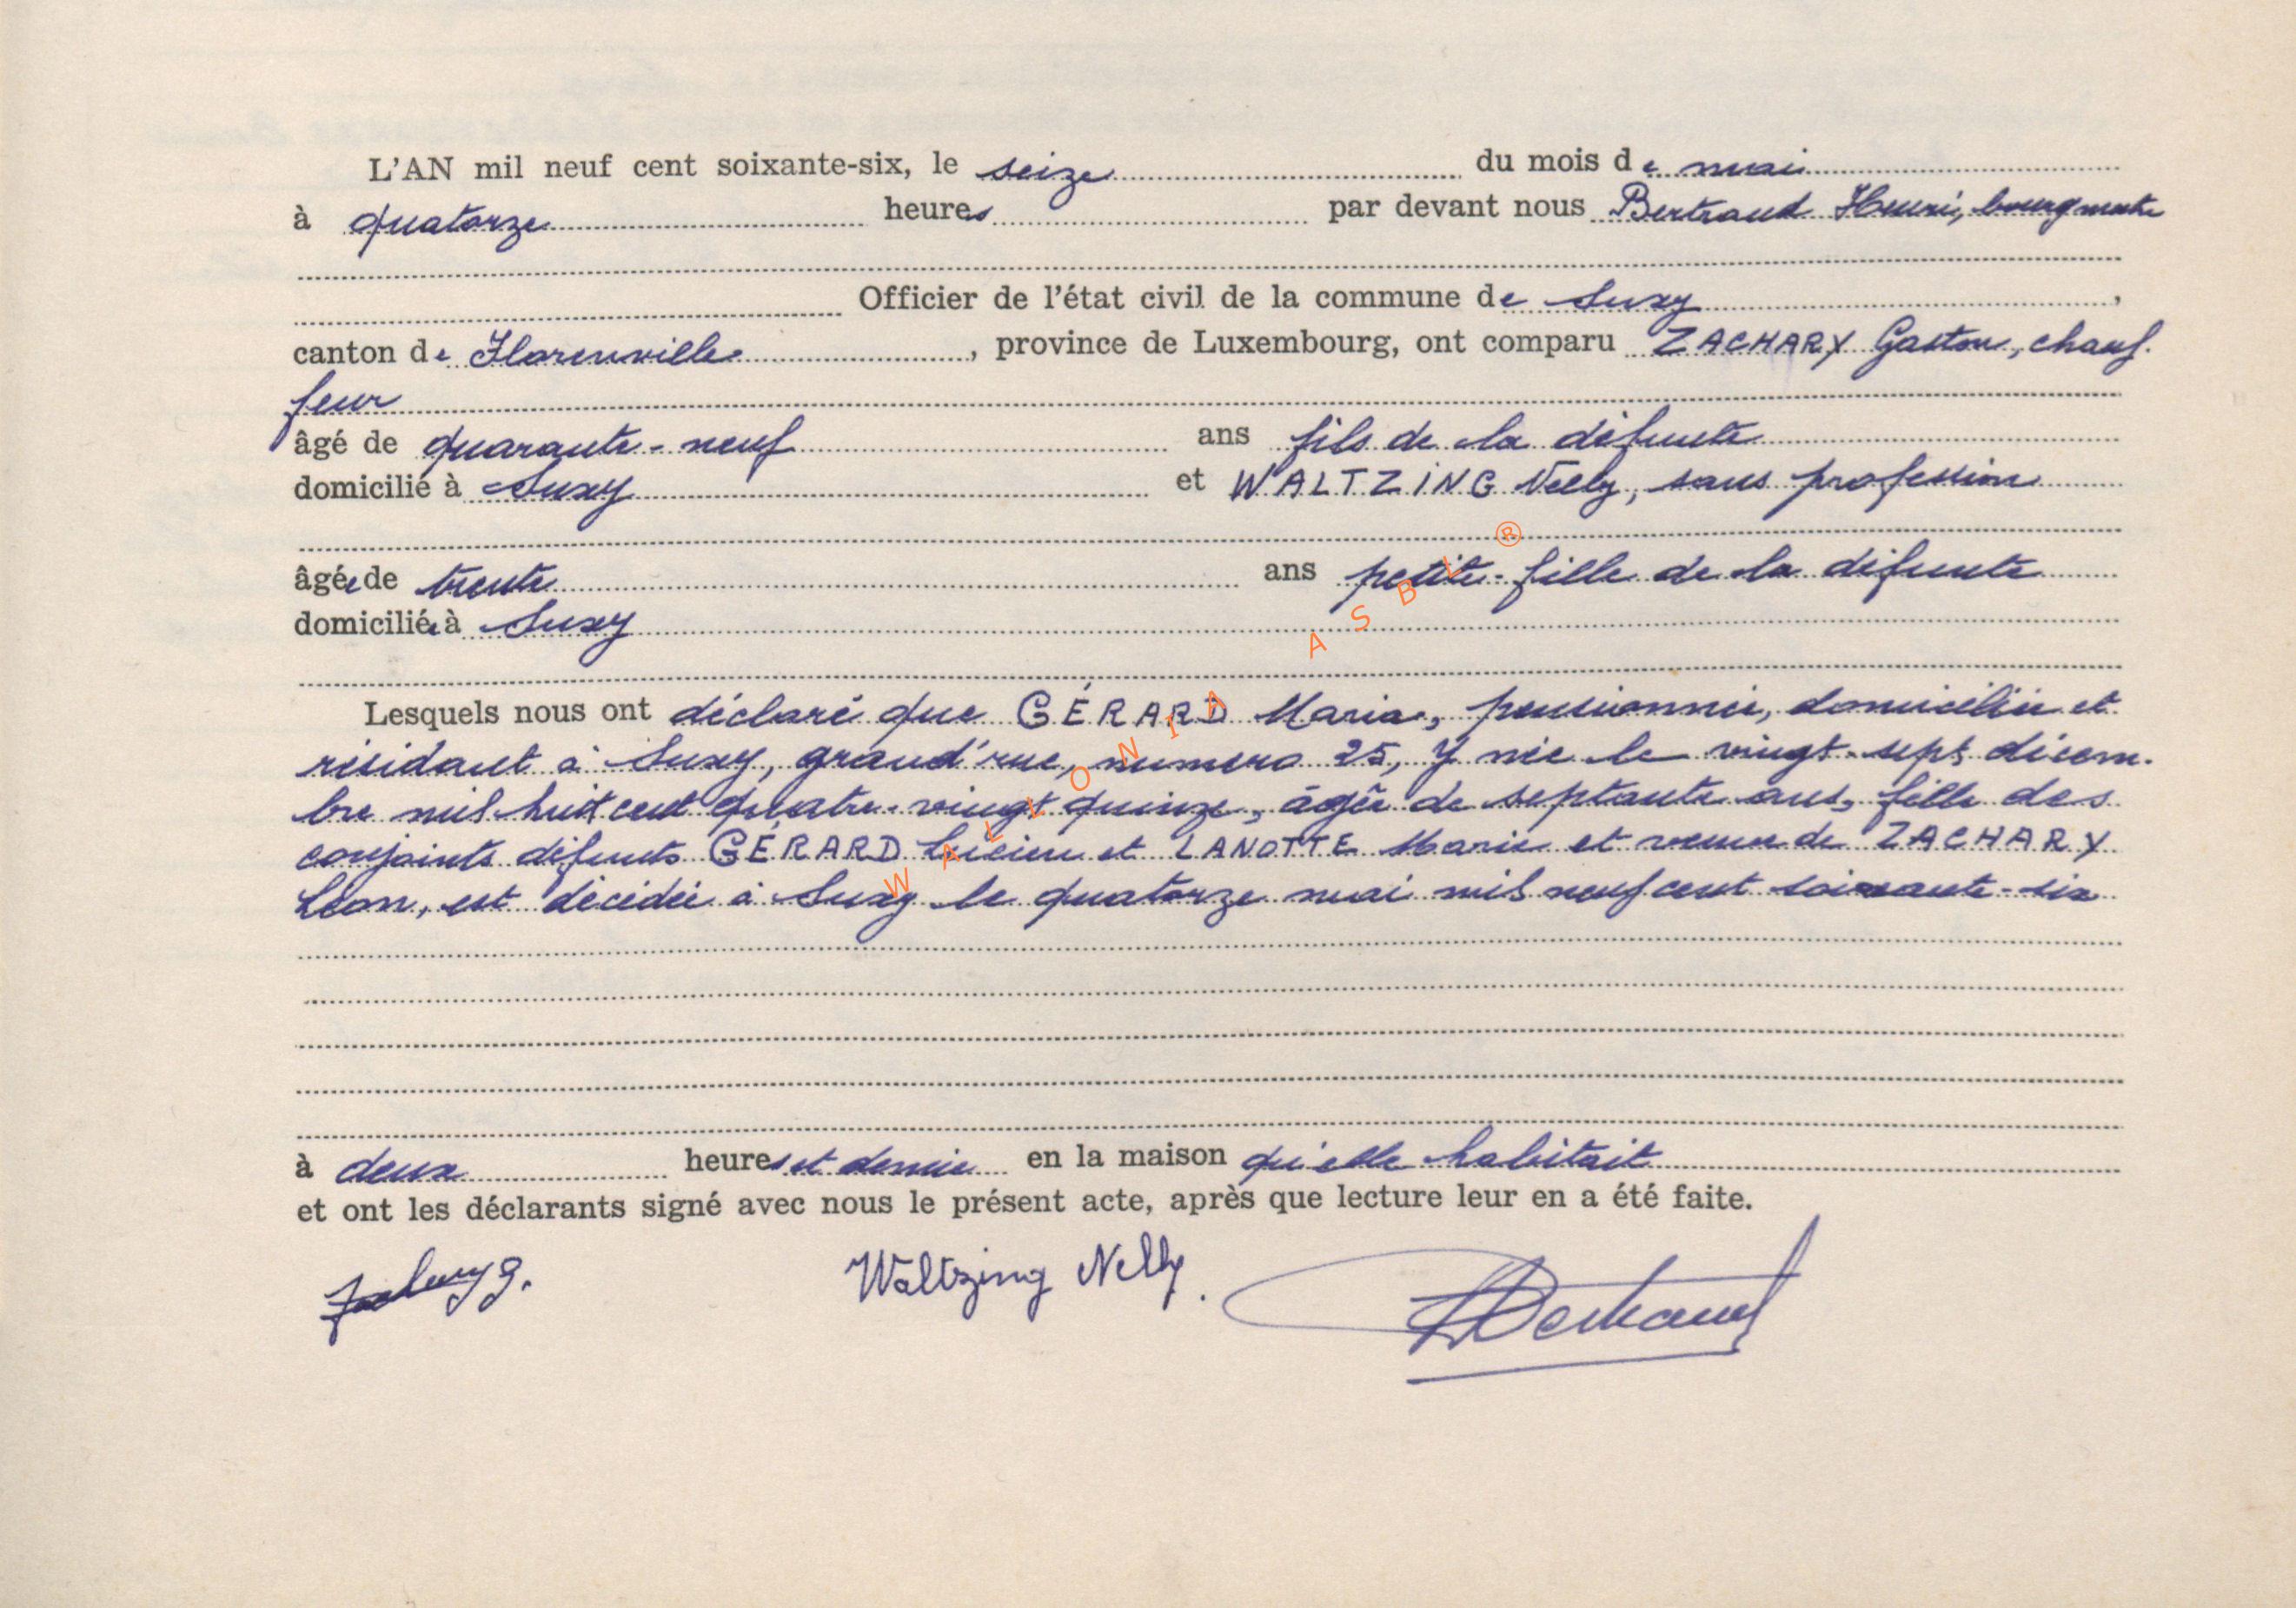 L'AN mil neuf cent soixante-six, le seize du mois de mai
à quatorze heures par devant nous Bertrand Henri, bourgmestre
Officier de l'état civil de la commune de Suxy,
canton de Florenville, province de Luxembourg, ont comparu ZACHARY Gaston, chauf-
feur
âgé de quarante-neuf ans fils de la défunte
domicilié à Suxy et WALTZING Nelly, sans profession
âgée de trente ans petite-fille de la défunte
domiciliée à Suxy
Lesquels nous ont déclaré que GÉRARD Maria, pensionnée, domiciliée et
résidant à Suxy, grand'rue, numéro 25, y née le vingt-sept décem-
bre mil huit cent quatre-vingt quinze, âgée de septante ans, fille des
conjoints défunts GÉRARD Lucien et LANOTTE Marie et veuve de ZACHARY
Léon, est décédée à Suxy le quatorze mai mil neuf cent soixante-six
à deux heures et demie en la maison qu'elle habitait
et ont les déclarants signé avec nous le présent acte, après que lecture leur en a été faite.
Zachary G. Waltzing Nelly. HBertrand
WALLONIA ASBL ®